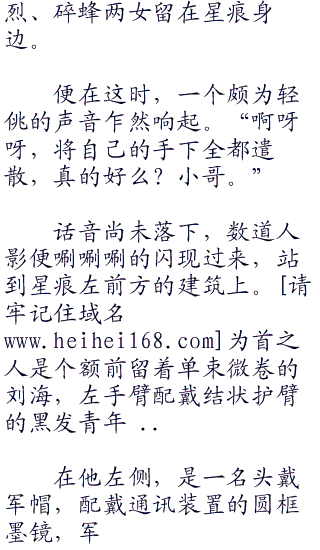 烈、碎蜂两女留在星痕身
边。
便在这时，一个颇为轻
佻的声音乍然响起。“啊呀
呀，将自己的手下全都遣
散，真的好么？小哥。”
话音尚未落下，数道人
影便唰唰唰的闪现过来，站
到星痕左前方的建筑上。[请
牢记住域名
www.heihei168.com]为首之
人是个额前留着单束微卷的
刘海，左手臂配戴结状护臂
的黑发青年 ..
在他左侧，是一名头戴
军帽，配戴通讯装置的圆框
墨镜，军